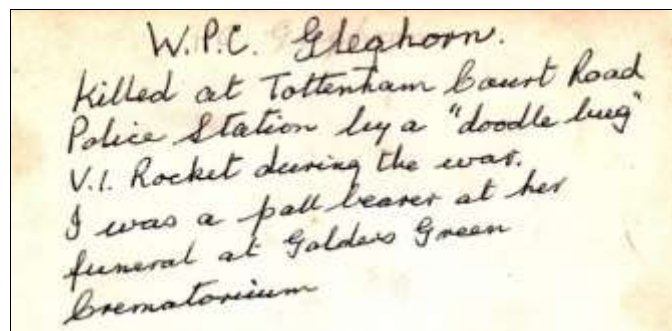 W.P.C. Gleghorn.
Killed at Tottenham Court Road
Police Station by a "doodle bug"
V.1. Rocket during the war.
I was a pall bearer at her
funeral at Golders Green
Crematorium